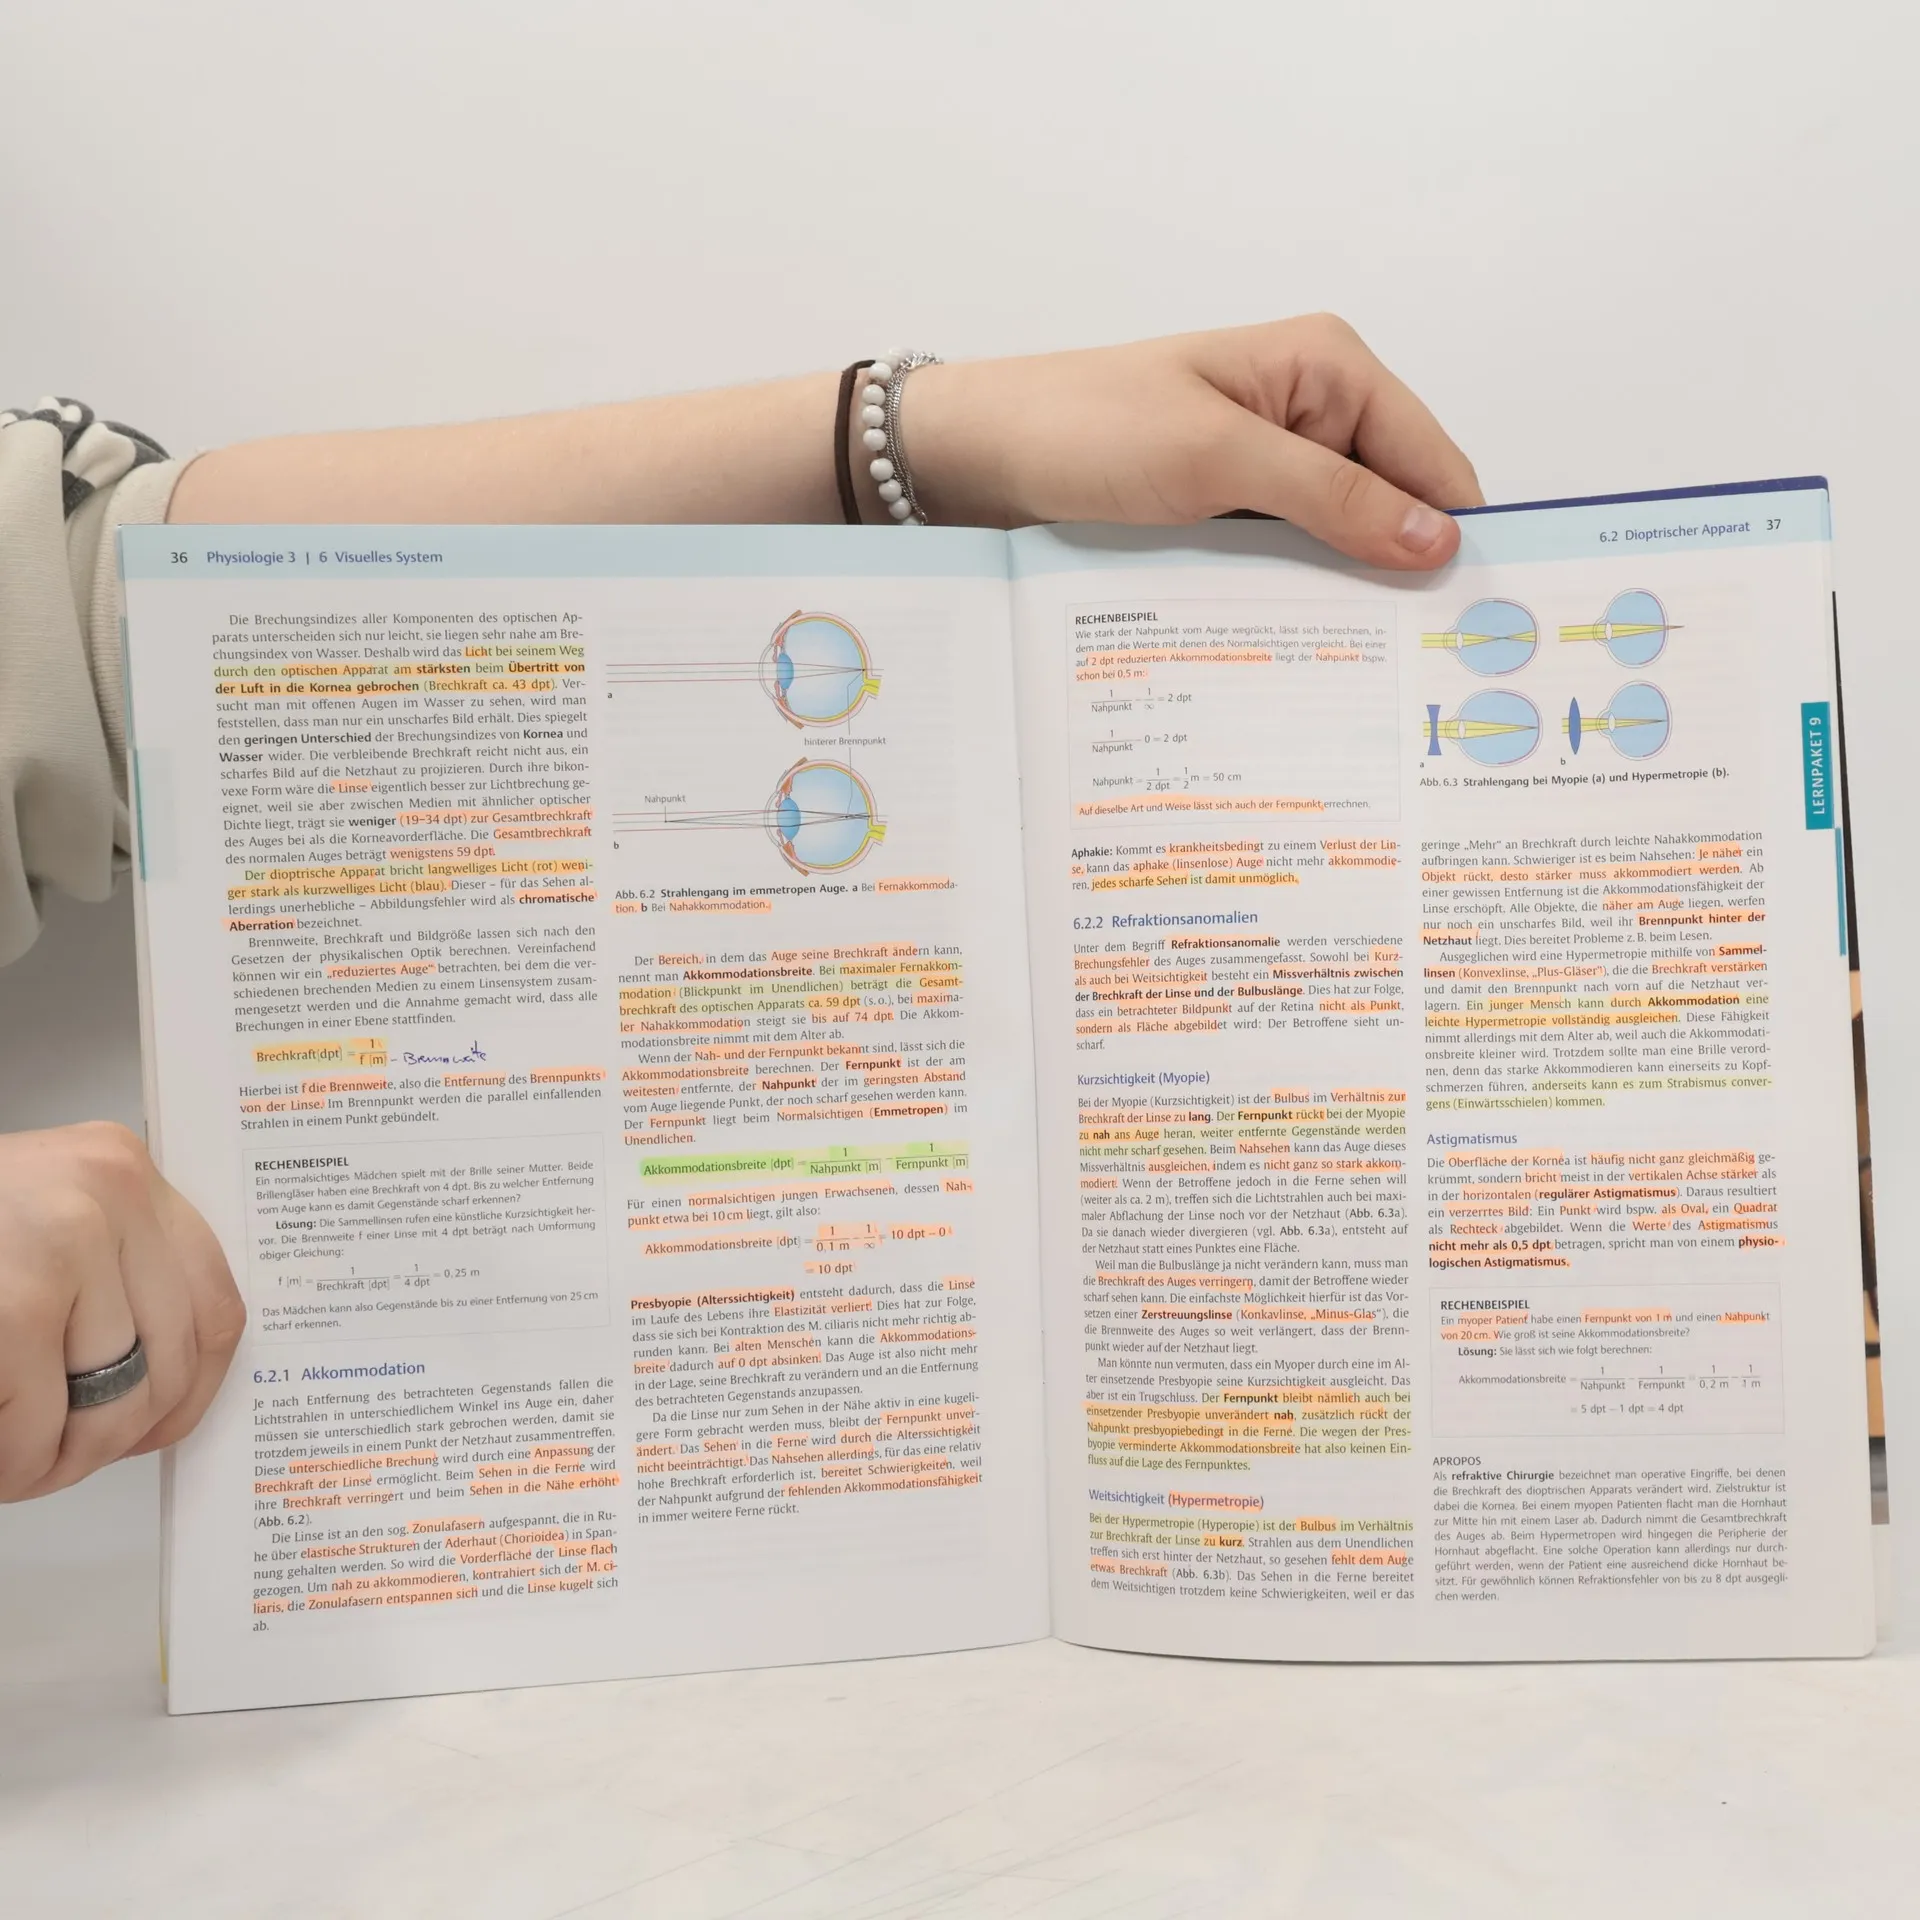 36 Physiologie 3 | 6 Visuelles System
Die Brechungsindizes aller Komponenten des optischen Ap-
parats unterscheiden sich nur leicht, sie liegen sehr nahe am Bre-
chungsindex von Wasser. Deshalb wird das Licht bei seinem Weg
durch den optischen Apparat am stärksten beim Übertritt von
der Luft in die Kornea gebrochen (Brechkraft ca. 43 dpt). Ver-
sucht man mit offenen Augen im Wasser zu sehen, wird man
feststellen, dass man nur ein unscharfes Bild erhält. Dies spiegelt
den geringen Unterschied der Brechungsindizes von Kornea und
Wasser wider. Die verbleibende Brechkraft reicht nicht aus, ein
scharfes Bild auf die Netzhaut zu projizieren. Durch ihre bikon-
vexe Form wäre die Linse eigentlich besser zur Lichtbrechung ge-
eignet, weil sie aber zwischen Medien mit ähnlicher optischer
Dichte liegt, trägt sie weniger (19–34 dpt) zur Gesamtbrechkraft
des Auges bei als die Korneavorderfläche. Die Gesamtbrechkraft
des normalen Auges beträgt wenigstens 59 dpt.
Der dioptrische Apparat bricht langwelliges Licht (rot) weni-
ger stark als kurzwelliges Licht (blau). Dieser – für das Sehen al-
lerdings unerhebliche – Abbildungsfehler wird als chromatische
Aberration bezeichnet.
Brennweite, Brechkraft und Bildgröße lassen sich nach den
Gesetzen der physikalischen Optik berechnen. Vereinfachend
können wir ein „reduziertes Auge“ betrachten, bei dem die ver-
schiedenen brechenden Medien zu einem Linsensystem zusam-
mengesetzt werden und die Annahme gemacht wird, dass alle
Brechungen in einer Ebene stattfinden.
Brechkraft[dpt] = 1 / f [m] – Brennweite
Hierbei ist f die Brennweite, also die Entfernung des Brennpunkts
von der Linse. Im Brennpunkt werden die parallel einfallenden
Strahlen in einem Punkt gebündelt.
RECHENBEISPIEL
Ein normalsichtiges Mädchen spielt mit der Brille seiner Mutter. Beide
Brillengläser haben eine Brechkraft von 4 dpt. Bis zu welcher Entfernung
vom Auge kann es damit Gegenstände scharf erkennen?
Lösung: Die Sammellinsen rufen eine künstliche Kurzsichtigkeit her-
vor. Die Brennweite f einer Linse mit 4 dpt beträgt nach Umformung
obiger Gleichung:
f [m] = 1 / Brechkraft [dpt] = 1 / 4 dpt = 0,25 m
Das Mädchen kann also Gegenstände bis zu einer Entfernung von 25 cm
scharf erkennen.
6.2.1 Akkommodation
Je nach Entfernung des betrachteten Gegenstands fallen die
Lichtstrahlen in unterschiedlichem Winkel ins Auge ein, daher
müssen sie unterschiedlich stark gebrochen werden, damit sie
trotzdem jeweils in einem Punkt der Netzhaut zusammentreffen.
Diese unterschiedliche Brechung wird durch eine Anpassung der
Brechkraft der Linse ermöglicht. Beim Sehen in die Ferne wird
ihre Brechkraft verringert und beim Sehen in die Nähe erhöht
(Abb. 6.2).
Die Linse ist an den sog. Zonulafasern aufgespannt, die in Ru-
he über elastische Strukturen der Aderhaut (Chorioidea) in Span-
nung gehalten werden. So wird die Vorderfläche der Linse flach
gezogen. Um nah zu akkommodieren, kontrahiert sich der M. ci-
liaris, die Zonulafasern entspannen sich und die Linse kugelt sich
ab.
a
hinterer Brennpunkt
Nahpunkt
b
Abb. 6.2 Strahlengang im emmetropen Auge. a Bei Fernakkommoda-
tion. b Bei Nahakkommodation.
Der Bereich, in dem das Auge seine Brechkraft ändern kann,
nennt man Akkommodationsbreite. Bei maximaler Fernakkom-
modation (Blickpunkt im Unendlichen) beträgt die Gesamt-
brechkraft des optischen Apparats ca. 59 dpt (s. o.), bei maxima-
ler Nahakkommodation steigt sie bis auf 74 dpt. Die Akkom-
modationsbreite nimmt mit dem Alter ab.
Wenn der Nah- und der Fernpunkt bekannt sind, lässt sich die
Akkommodationsbreite berechnen. Der Fernpunkt ist der am
weitesten entfernte, der Nahpunkt der im geringsten Abstand
vom Auge liegende Punkt, der noch scharf gesehen werden kann.
Der Fernpunkt liegt beim Normalsichtigen (Emmetropen) im
Unendlichen.
Akkommodationsbreite [dpt] = 1 / Nahpunkt [m] – 1 / Fernpunkt [m]
Für einen normalsichtigen jungen Erwachsenen, dessen Nah-
punkt etwa bei 10 cm liegt, gilt also:
Akkommodationsbreite [dpt] = 1 / 0,1 m – 1 / ∞ = 10 dpt – 0
= 10 dpt
Presbyopie (Alterssichtigkeit) entsteht dadurch, dass die Linse
im Laufe des Lebens ihre Elastizität verliert. Dies hat zur Folge,
dass sie sich bei Kontraktion des M. ciliaris nicht mehr richtig ab-
runden kann. Bei alten Menschen kann die Akkommodations-
breite dadurch auf 0 dpt absinken. Das Auge ist also nicht mehr
in der Lage, seine Brechkraft zu verändern und an die Entfernung
des betrachteten Gegenstands anzupassen.
Da die Linse nur zum Sehen in der Nähe aktiv in eine kugeli-
gere Form gebracht werden muss, bleibt der Fernpunkt unver-
ändert. Das Sehen in die Ferne wird durch die Alterssichtigkeit
nicht beeinträchtigt. Das Nahsehen allerdings, für das eine relativ
hohe Brechkraft erforderlich ist, bereitet Schwierigkeiten, weil
der Nahpunkt aufgrund der fehlenden Akkommodationsfähigkeit
in immer weitere Ferne rückt.
6.2 Dioptrischer Apparat 37
RECHENBEISPIEL
Wie stark der Nahpunkt vom Auge wegrückt, lässt sich berechnen, in-
dem man die Werte mit denen des Normalsichtigen vergleicht. Bei einer
auf 2 dpt reduzierten Akkommodationsbreite liegt der Nahpunkt bspw.
schon bei 0,5 m:
1 / Nahpunkt – 1 / ∞ = 2 dpt
1 / Nahpunkt – 0 = 2 dpt
Nahpunkt = 1 / 2 dpt = 1 / 2 m = 50 cm
Auf dieselbe Art und Weise lässt sich auch der Fernpunkt errechnen.
Aphakie: Kommt es krankheitsbedingt zu einem Verlust der Lin-
se, kann das aphake (linsenlose) Auge nicht mehr akkommodie-
ren, jedes scharfe Sehen ist damit unmöglich.
6.2.2 Refraktionsanomalien
Unter dem Begriff Refraktionsanomalie werden verschiedene
Brechungsfehler des Auges zusammengefasst. Sowohl bei Kurz-
als auch bei Weitsichtigkeit besteht ein Missverhältnis zwischen
der Brechkraft der Linse und der Bulbuslänge. Dies hat zur Folge,
dass ein betrachteter Bildpunkt auf der Retina nicht als Punkt,
sondern als Fläche abgebildet wird: Der Betroffene sieht un-
scharf.
Kurzsichtigkeit (Myopie)
Bei der Myopie (Kurzsichtigkeit) ist der Bulbus im Verhältnis zur
Brechkraft der Linse zu lang. Der Fernpunkt rückt bei der Myopie
zu nah ans Auge heran, weiter entfernte Gegenstände werden
nicht mehr scharf gesehen. Beim Nahsehen kann das Auge dieses
Missverhältnis ausgleichen, indem es nicht ganz so stark akkom-
modiert. Wenn der Betroffene jedoch in die Ferne sehen will
(weiter als ca. 2 m), treffen sich die Lichtstrahlen auch bei maxi-
maler Abflachung der Linse noch vor der Netzhaut (Abb. 6.3a).
Da sie danach wieder divergieren (vgl. Abb. 6.3a), entsteht auf
der Netzhaut statt eines Punktes eine Fläche.
Weil man die Bulbuslänge ja nicht verändern kann, muss man
die Brechkraft des Auges verringern, damit der Betroffene wieder
scharf sehen kann. Die einfachste Möglichkeit hierfür ist das Vor-
setzen einer Zerstreuungslinse (Konkavlinse, „Minus-Glas“), die
die Brennweite des Auges so weit verlängert, dass der Brenn-
punkt wieder auf der Netzhaut liegt.
Man könnte nun vermuten, dass ein Myoper durch eine im Al-
ter einsetzende Presbyopie seine Kurzsichtigkeit ausgleicht. Das
aber ist ein Trugschluss. Der Fernpunkt bleibt nämlich auch bei
einsetzender Presbyopie unverändert nah, zusätzlich rückt der
Nahpunkt presbyopiebedingt in die Ferne. Die wegen der Pres-
byopie verminderte Akkommodationsbreite hat also keinen Ein-
fluss auf die Lage des Fernpunktes.
Weitsichtigkeit (Hypermetropie)
Bei der Hypermetropie (Hyperopie) ist der Bulbus im Verhältnis
zur Brechkraft der Linse zu kurz. Strahlen aus dem Unendlichen
treffen sich erst hinter der Netzhaut, so gesehen fehlt dem Auge
etwas Brechkraft (Abb. 6.3b). Das Sehen in die Ferne bereitet
dem Weitsichtigen trotzdem keine Schwierigkeiten, weil er das
a
b
Abb. 6.3 Strahlengang bei Myopie (a) und Hypermetropie (b).
geringe „Mehr“ an Brechkraft durch leichte Nahakkommodation
aufbringen kann. Schwieriger ist es beim Nahsehen: Je näher ein
Objekt rückt, desto stärker muss akkommodiert werden. Ab
einer gewissen Entfernung ist die Akkommodationsfähigkeit der
Linse erschöpft. Alle Objekte, die näher am Auge liegen, werfen
nur noch ein unscharfes Bild, weil ihr Brennpunkt hinter der
Netzhaut liegt. Dies bereitet Probleme z. B. beim Lesen.
Ausgeglichen wird eine Hypermetropie mithilfe von Sammel-
linsen (Konvexlinse, „Plus-Gläser“), die die Brechkraft verstärken
und damit den Brennpunkt nach vorn auf die Netzhaut ver-
lagern. Ein junger Mensch kann durch Akkommodation eine
leichte Hypermetropie vollständig ausgleichen. Diese Fähigkeit
nimmt allerdings mit dem Alter ab, weil auch die Akkommodati-
onsbreite kleiner wird. Trotzdem sollte man eine Brille verord-
nen, denn das starke Akkommodieren kann einerseits zu Kopf-
schmerzen führen, anderseits kann es zum Strabismus conver-
gens (Einwärtsschielen) kommen.
Astigmatismus
Die Oberfläche der Kornea ist häufig nicht ganz gleichmäßig ge-
krümmt, sondern bricht meist in der vertikalen Achse stärker als
in der horizontalen (regulärer Astigmatismus). Daraus resultiert
ein verzerrtes Bild: Ein Punkt wird bspw. als Oval, ein Quadrat
als Rechteck abgebildet. Wenn die Werte des Astigmatismus
nicht mehr als 0,5 dpt betragen, spricht man von einem physio-
logischen Astigmatismus.
RECHENBEISPIEL
Ein myoper Patient habe einen Fernpunkt von 1 m und einen Nahpunkt
von 20 cm. Wie groß ist seine Akkommodationsbreite?
Lösung: Sie lässt sich wie folgt berechnen:
Akkommodationsbreite = 1 / Nahpunkt – 1 / Fernpunkt = 1 / 0,2 m – 1 / 1 m
= 5 dpt – 1 dpt = 4 dpt
APROPOS
Als refraktive Chirurgie bezeichnet man operative Eingriffe, bei denen
die Brechkraft des dioptrischen Apparats verändert wird. Zielstruktur ist
dabei die Kornea. Bei einem myopen Patienten flacht man die Hornhaut
zur Mitte hin mit einem Laser ab. Dadurch nimmt die Gesamtbrechkraft
des Auges ab. Beim Hypermetropen wird hingegen die Peripherie der
Hornhaut abgeflacht. Eine solche Operation kann allerdings nur durch-
geführt werden, wenn der Patient eine ausreichend dicke Hornhaut be-
sitzt. Für gewöhnlich können Refraktionsfehler von bis zu 8 dpt ausgegli-
chen werden.
LERNPAKET 9